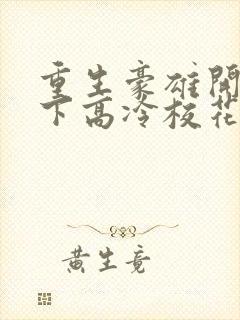 重生豪雄開
下高冷校花
黄生竟